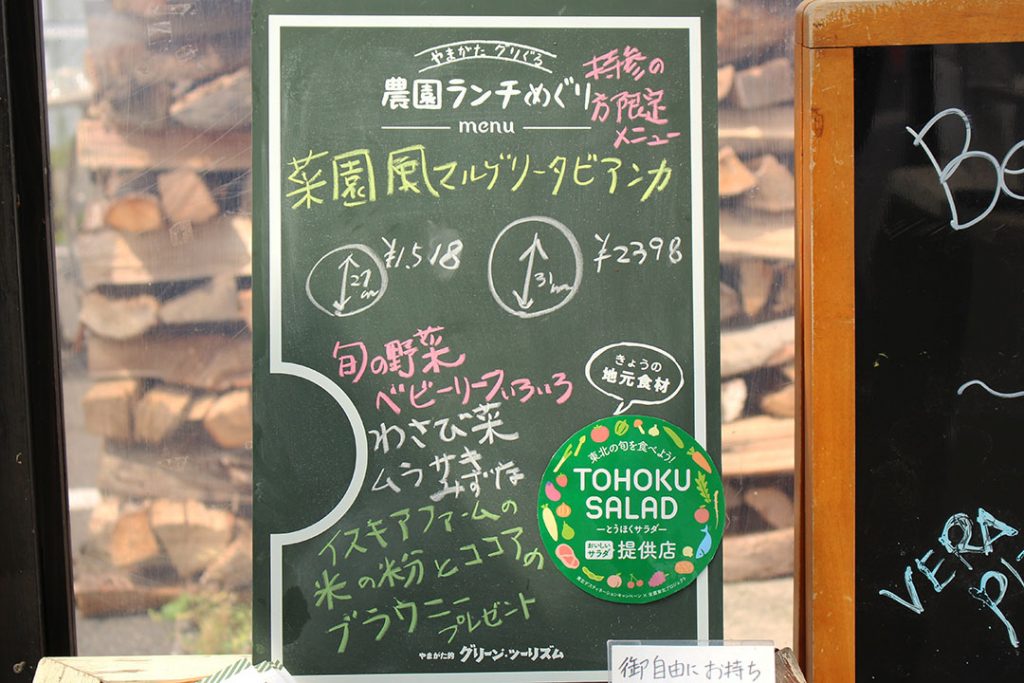 やまがた グリぐる
農園ランチめぐり
menu
持参の
方限定
メニュー
菜園風マルゲリータビアンカ
27cm
¥1,518
31cm
¥2398
旬の野菜
ベビーリーフいろいろ
わさび菜
ムラサキ
みずな
イスキアファームの
米の粉とココアの
ブラウニー
プレゼント
きょうの
地元食材
東北の旬を食べよう!
TOHOKU
SALAD
ーとうほくサラダー
おいしい
サラダ
提供店
やまがた的 グリーン・ツーリズム
御自由にお持ち
Be
VERA